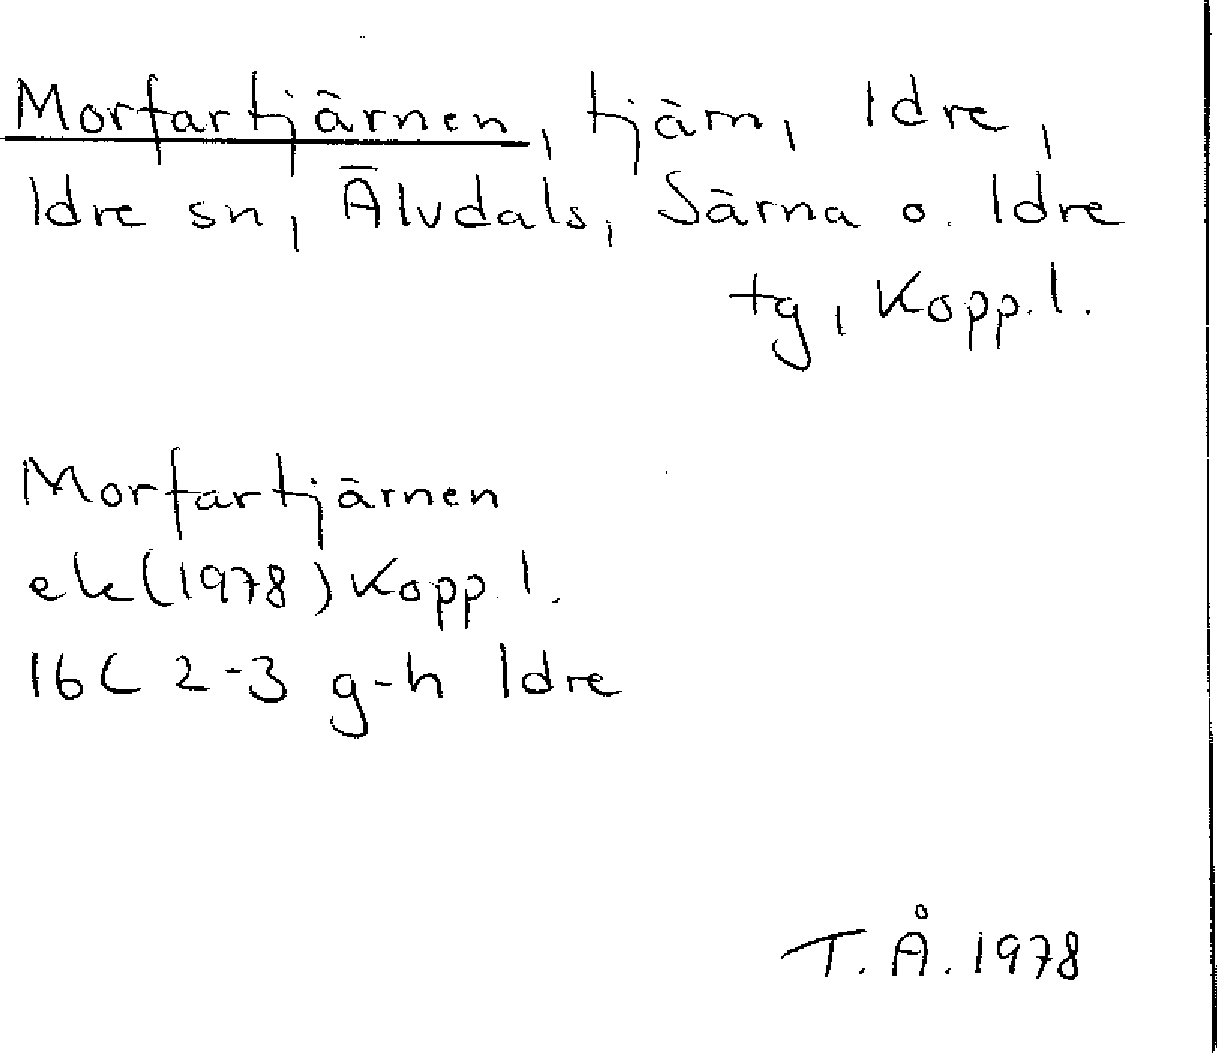 Morfartjärnen, tjärn, Idre,
Idre sn, Älvdals, Särna o. Idre
tg, Kopp. l.
Morfartjärnen
ek (1978) Kopp. l.
16C 2-3 g-h Idre
T. Å. 1978